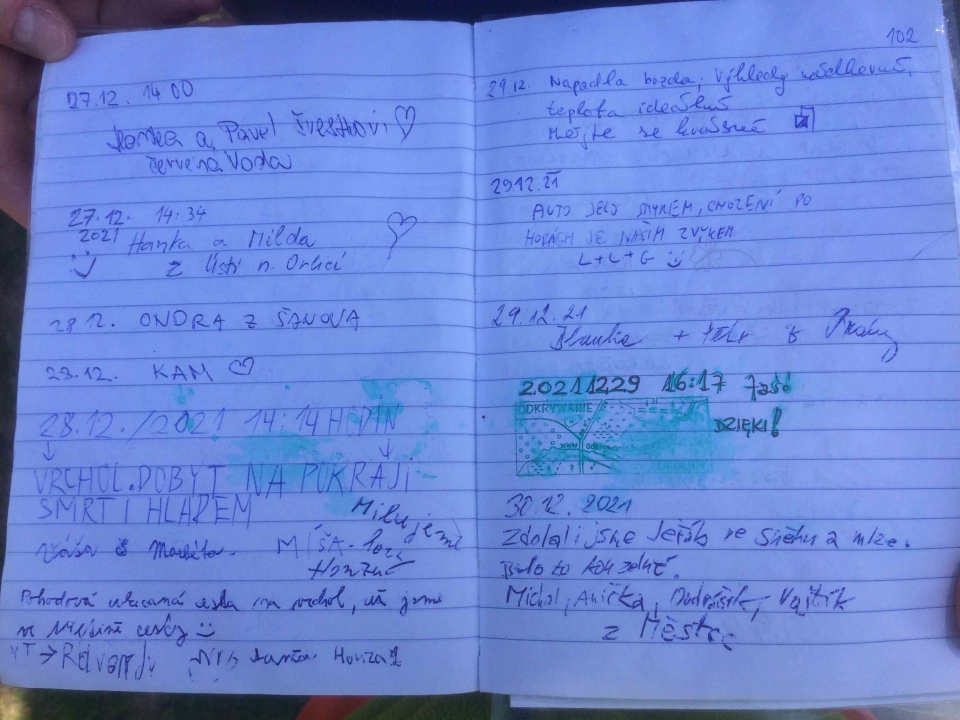 27.12. 14 00
a Pavel Švestkovi
červená Voda
27.12. 14:34
2021 Hanka a Milda
z Ústí n. Orlicí
28.12. ONDRA Z ŠANOVA
28.12. KAM
28.12./2021 14:14 HODIN
VRCHOL DOBYT NA POKRAJI
SMRTI HLADEM
Milujeme
Váša MÍŠA
Honza
Pohodová cesta na vrchol, už jsme
YT →
102
29.12. Napadla bozda, Výhledy
teplota ideální
Mějte se krásně
29.12.21
AUTO JELO SMYKEM, CHOZENÍ PO
HORÁCH JE NAŠIM ZVYKEM
L+L+G
29.12.21
Blanka + Petr z Prahy
20211229 16:17
DZIĘKI!
ODKRYWANIE
www.
30.12.2021
Zdolali jsme Jeřáb ve Sněhu a mlze.
Bylo to kouzelné.
Michal, Anička, Vojtík
z